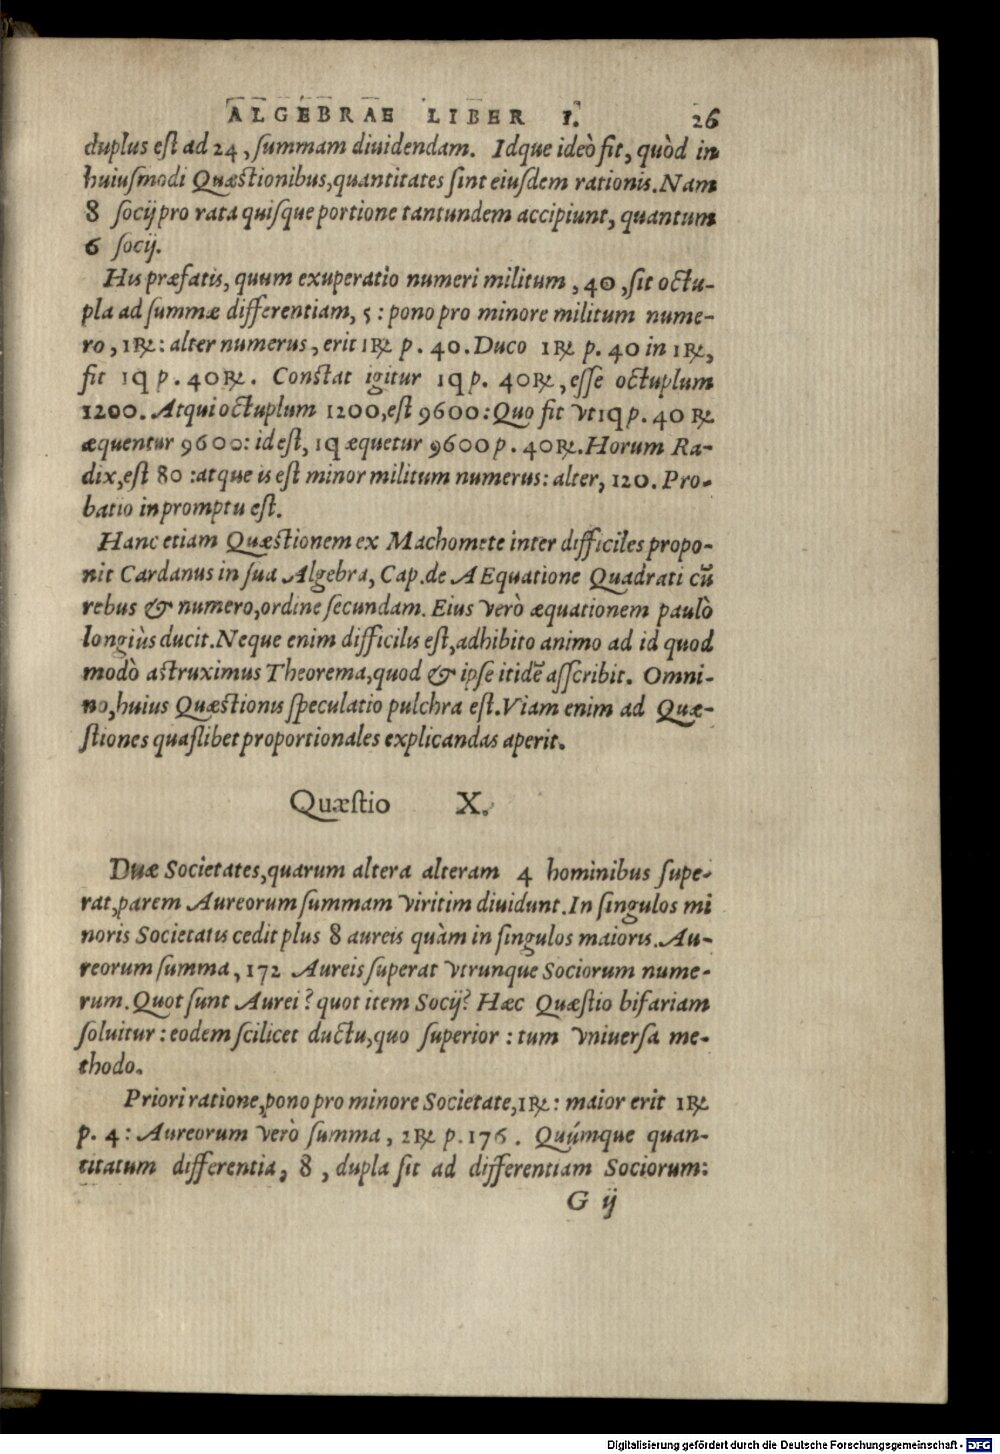 ALGEBRAE LIBER I. 26
duplus est ad 24, summam diuidendam. Idque ideò fit, quòd in
huiusmodi Quæstionibus, quantitates sint eiusdem rationis. Nam
8 socij pro rata quisque portione tantundem accipiunt, quantum
6 socij.
His præfatis, quum exuperatio numeri militum, 40, sit octu-
pla ad summæ differentiam, 5: pono pro minore militum nume-
ro, 1℞: alter numerus, erit 1℞ p. 40. Duco 1℞ p. 40 in 1℞,
fit 1q p. 40℞. Constat igitur 1q p. 40℞, esse octuplum
1200. Atqui octuplum 1200, est 9600: Quo fit vt 1q p. 40 ℞
æquentur 9600: id est, 1q æquetur 9600 p. 40℞. Horum Ra-
dix, est 80: atque is est minor militum numerus: alter, 120. Pro-
batio in promptu est.
Hanc etiam Quæstionem ex Machomete inter difficiles propo-
nit Cardanus in sua Algebra, Cap. de AEquatione Quadrati cū
rebus & numero, ordine secundam. Eius verò æquationem paulò
longiùs ducit. Neque enim difficilis est, adhibito animo ad id quod
modò astruximus Theorema, quod & ipse itidē asscribit. Omni-
no, huius Quæstionis speculatio pulchra est. Viam enim ad Quæ-
stiones quaslibet proportionales explicandas aperit.
Quæstio X.
Duæ Societates, quarum altera alteram 4 hominibus supe-
rat, parem Aureorum summam viritim diuidunt. In singulos mi
noris Societatis cedit plus 8 aureis quàm in singulos maioris. Au-
reorum summa, 172 Aureis superat vtrunque Sociorum nume-
rum. Quot sunt Aurei? quot item Socij? Hæc Quæstio bifariam
soluitur: eodem scilicet ductu, quo superior: tum vniuersa me-
thodo.
Priori ratione, pono pro minore Societate, 1℞: maior erit 1℞
p. 4: Aureorum verò summa, 2℞ p. 176. Quúmque quan-
titatum differentia, 8, dupla sit ad differentiam Sociorum:
G ij
Digitalisierung gefördert durch die Deutsche Forschungsgemeinschaft - DFG